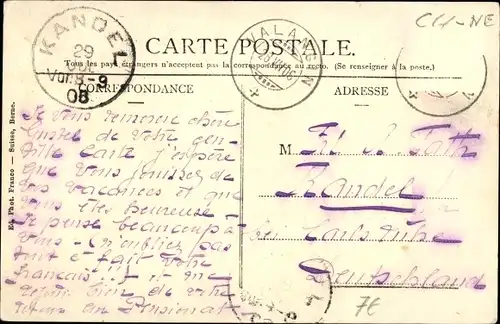 CH-NE
KANDEL
29
Vor. 8-9
08
VALANGIN
CARTE POSTALE.
Tous les pays étrangers n'acceptent pas la correspondance au recto. (Se renseigner à la poste.)
CORRESPONDANCE
ADRESSE
Je vous remercie chère
de votre gen-
tille carte j'espère
que vous jouissez de
vos vacances et que
vous êtes heureuse.
Je pense beaucoup à
vous. N'oubliez pas
tout à fait votre
français!!! et
bien de votre
au Pensionat
M
Kandel
bei Carlsruhe
Deutschland
7€
Ed. Phot. Franco-Suisse, Berne.